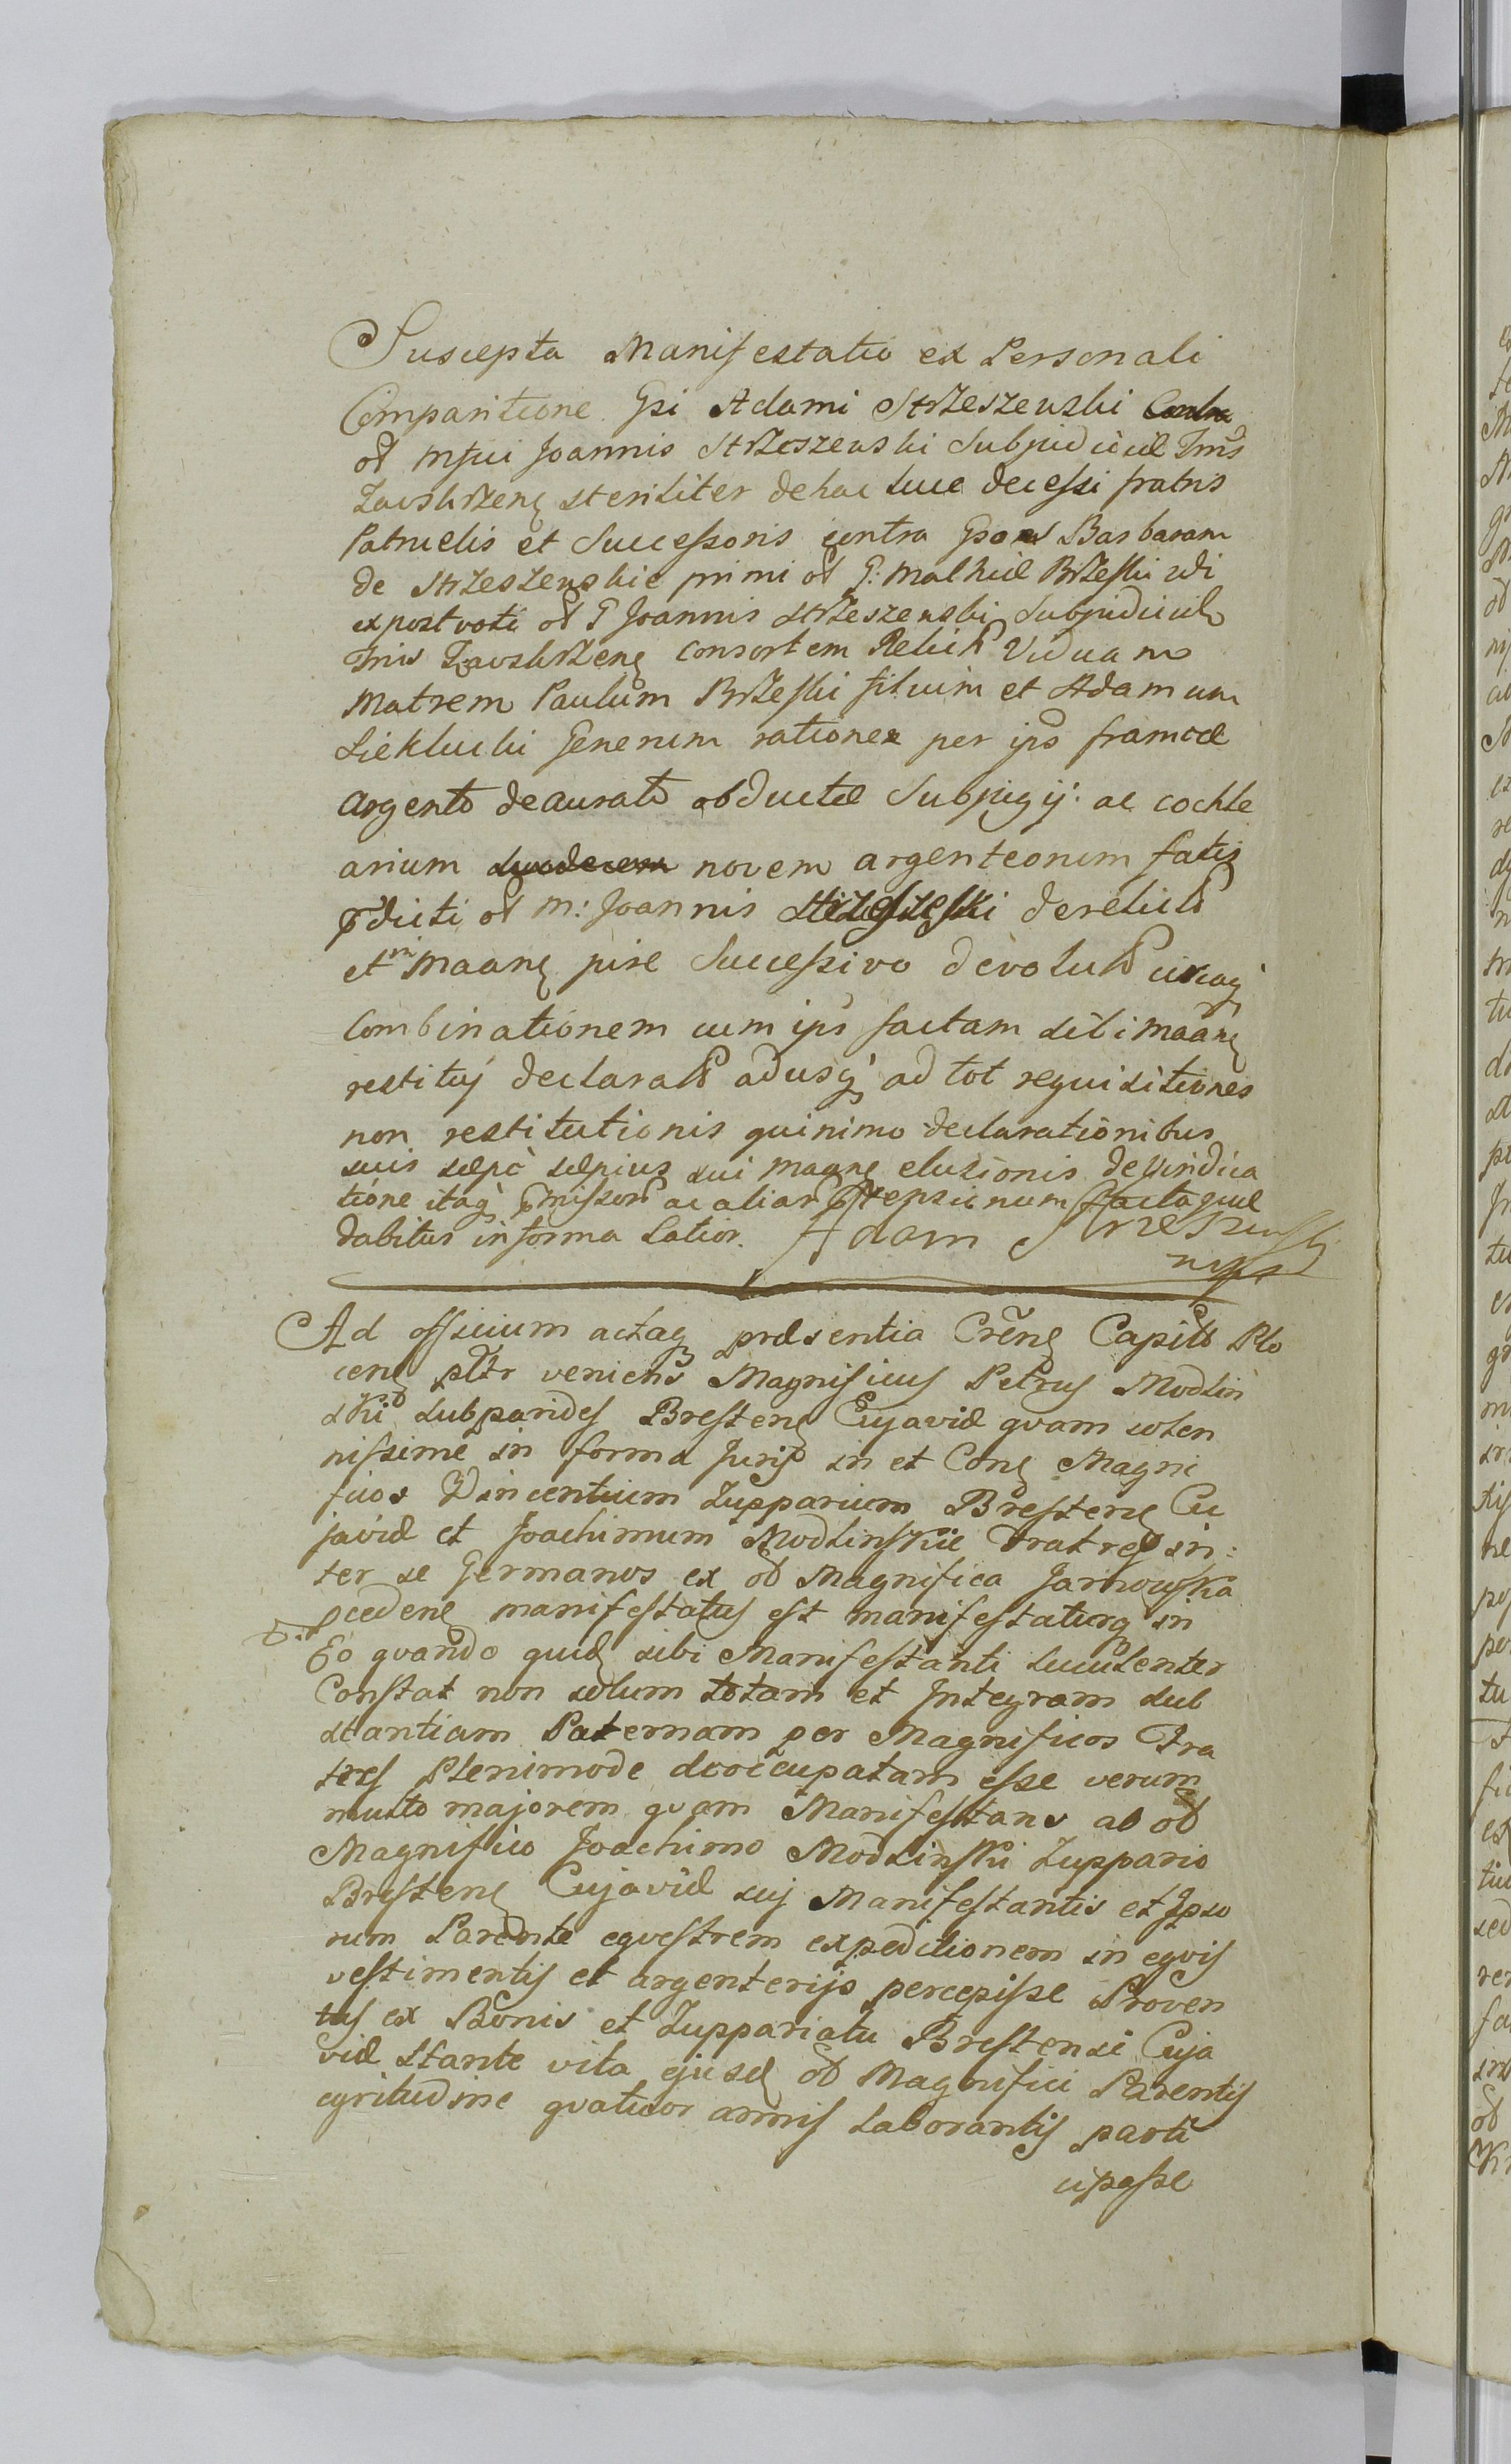 Suscepta Manifestatio ex Personali
Comparitione Gsi Adami Strzeszewski
ol Mfici Joannis Strzeszewski Subjudicis Trris
Zavskrzenę steriliter dehac luce decessi fratris
Patruelis et Successoris contra Gsos Barbaram
de Strzeszewskie primi ol G: Mathiæ Brzeski vdi
ex post voti ol G Joannis Strzeszewski Subjudicis
Trris Zavskrzenę consortem Relict Viduam
Matrem Paulum Brzeski filium et Adamum
Sieklucki Generum ratione per ips frameæ
argento deaurato obductæ Subjugij ac cochle
arium duodecem novem argenteorum fatis
pdicti ol M: Joannis Strzeszeski derelict
et maanę jure Successivo devolut circaq
Combinationem cum ips factam sibi maanę
restituj declarat adusq ad tot requisitiones
non restitutionis quinimo declarationibus
suis sæpe sæpius sui maanę elusionis devindica
tione itaq pmissor ac aliar
dabitur in forma latior. Adam Strzeszewski
mpp
Ad officium actaq præsentia Crenę Capitt Plo
cenę pltr veniens Magnificus Petrus Modlin
ski Subparides Brestenę Cujaviæ quam solen
nissime in forma Juris in et Conę Magni
ficos Vincentium Zupparium Brestenę Cu
javiæ et Joachimum Modlinskie Fratres in:
ter se Germanos ex ol Magnifica Jarnowska
pcedenę manifestatus est manifestaturq in
Eo quando quidę sibi Manifestanti luculenter
Constat non solum totam et Integram sub
stantiam Paternam per Magnificos Fra
tres Plenimode deoccupatam esse verum
multo majorem quam Manifestans ab ol
Magnifico Joachimo Modlinski Zuppario
Brestenę Cujaviæ suj Manifestantis et Ipso
rum Parente equestrem expeditionem in equis
vestimentis et argenterijs percepisse Proven
tus ex Bonis et Zuppariatu Brestensi Cuja
viæ stante vita ejusdę ol Magnifici Parentis
egritudine quatuor annis Laborantis parti
cipasse